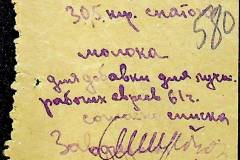 30,5 кгр. снятого
580
молока
для добавки для лучш.
рабочих евреев 61 ч.
согласно списка
Зав